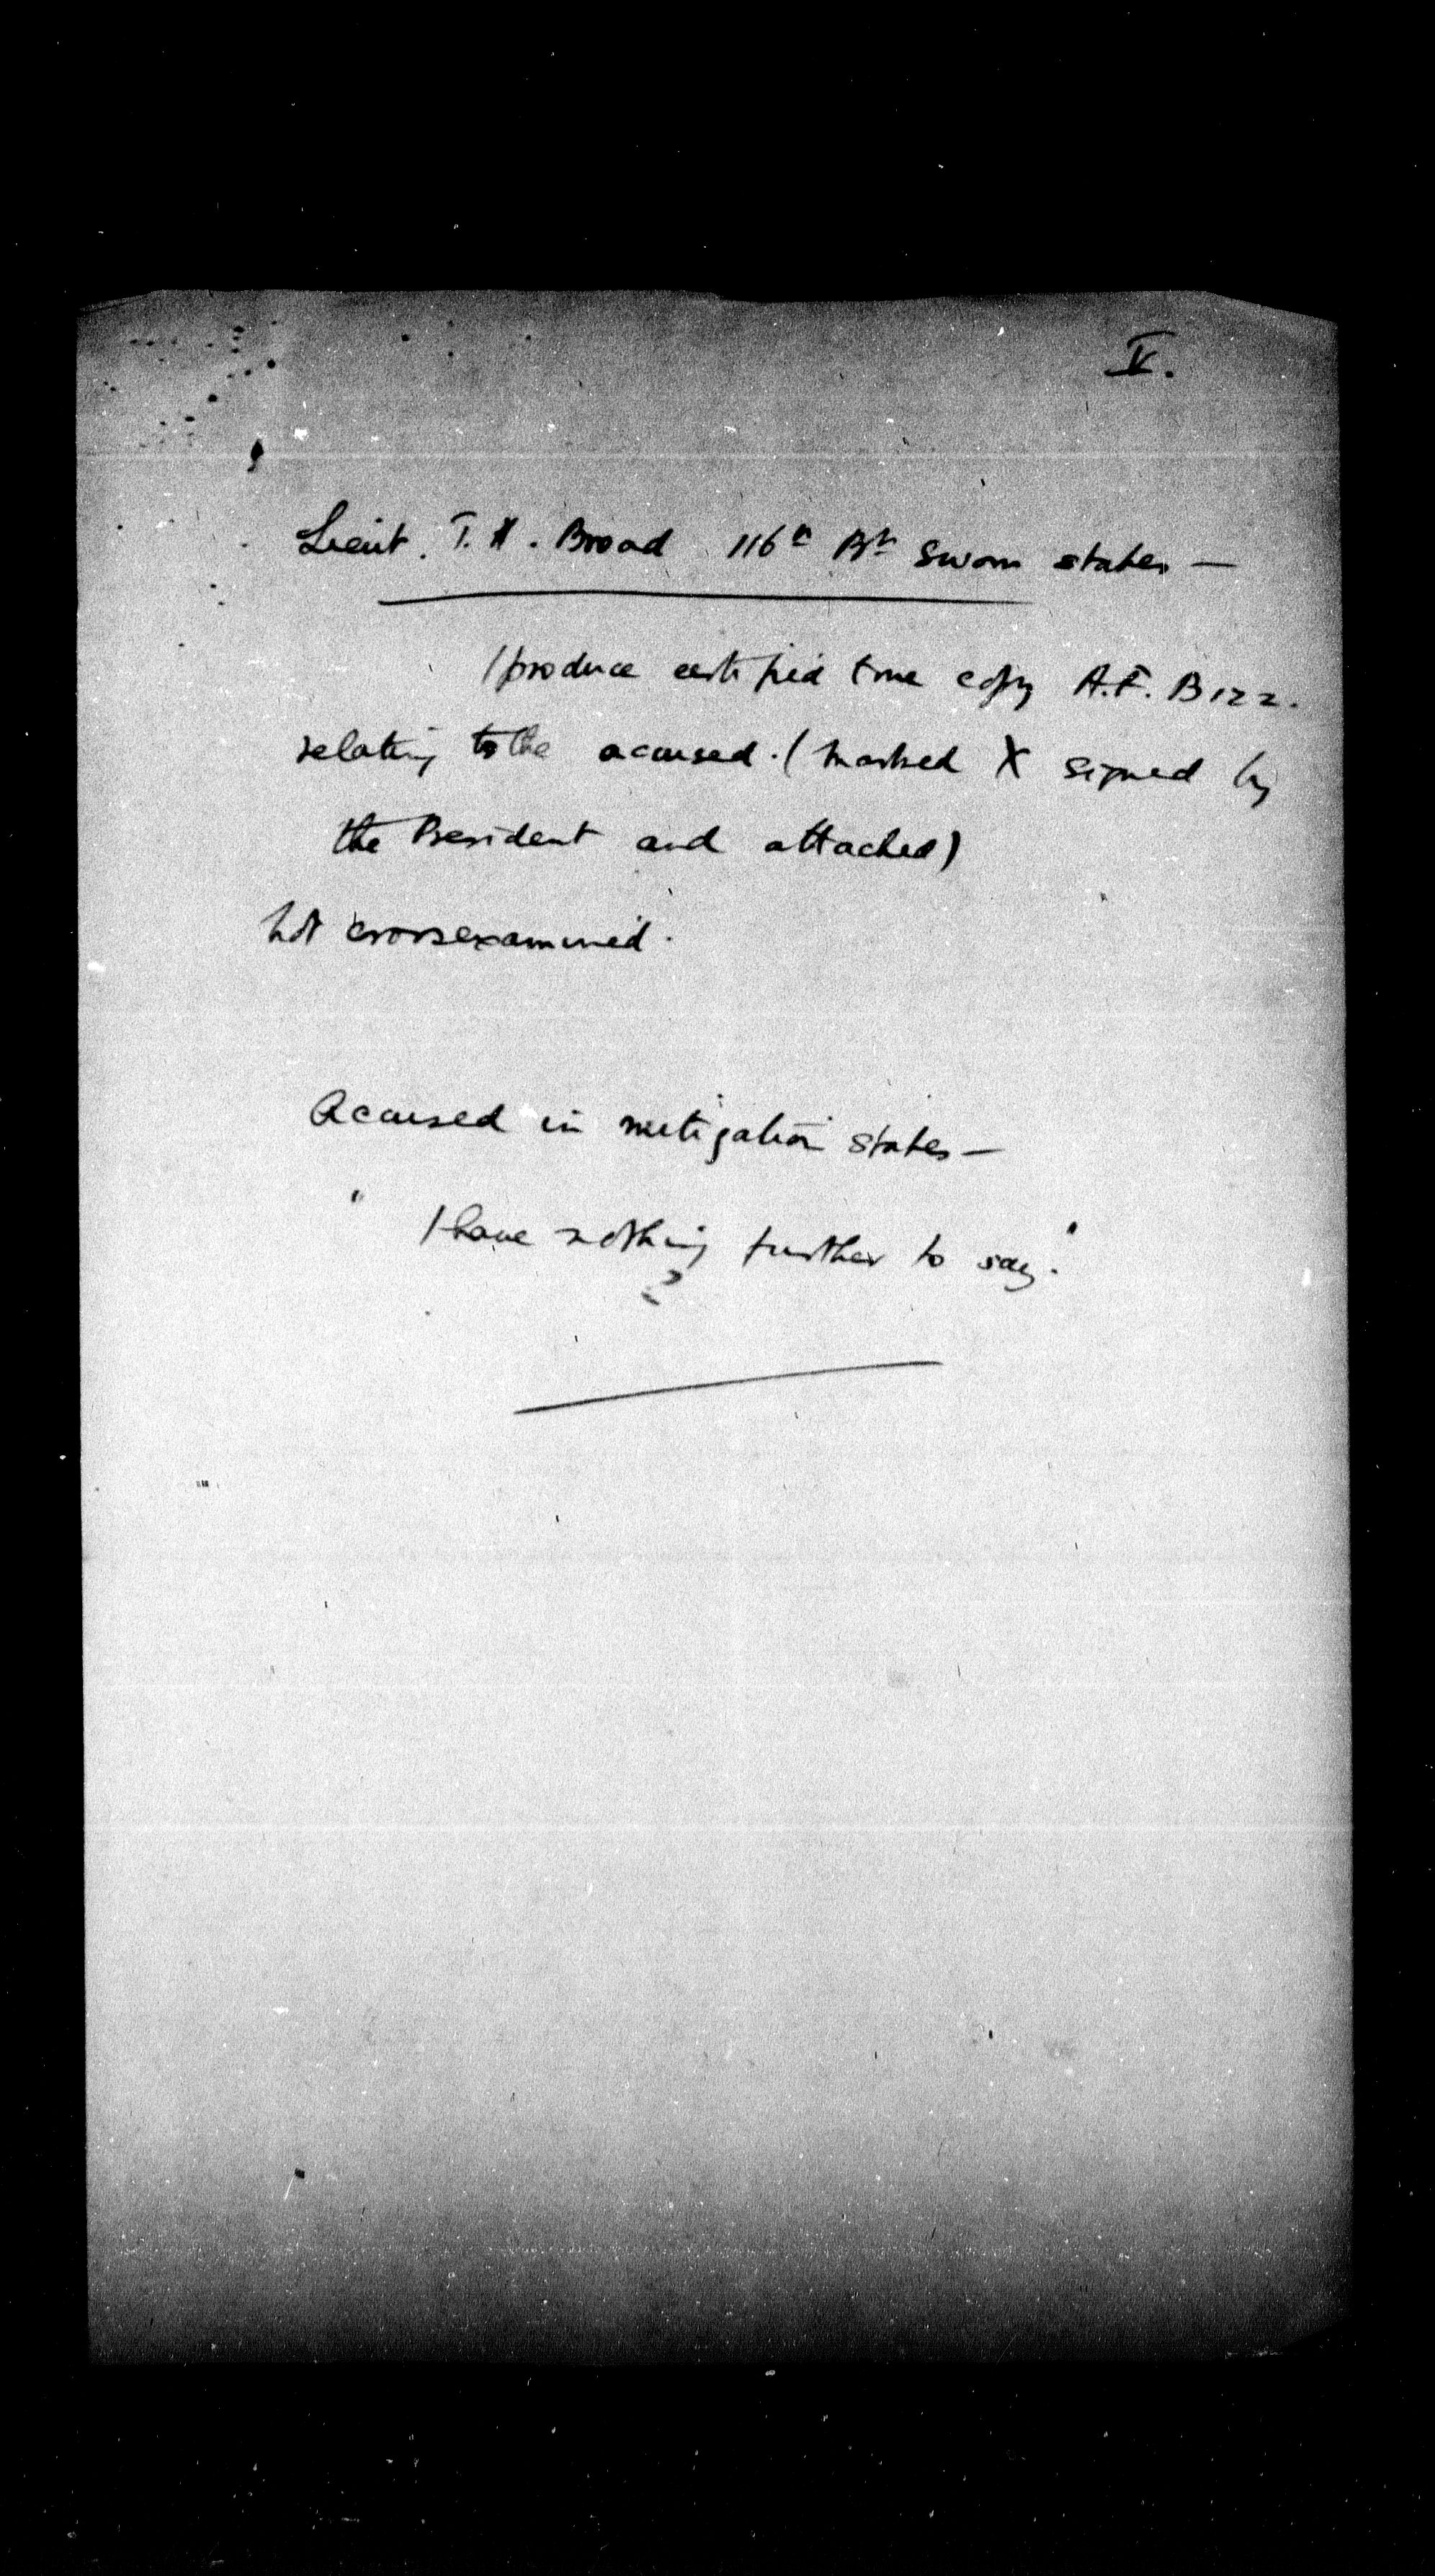 V.
Lieut. T. H. Broad 116th Bn sworn states —
I produce certified true copy A.F. B122.
relating to the accused. (marked X signed by
the President and attached)
Not crossexamined.
Accused in mitigation states —
" I have nothing further to say."